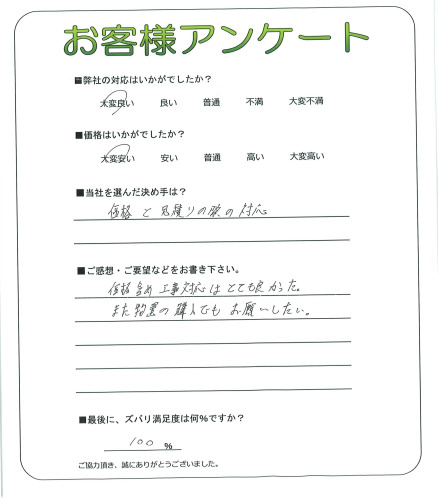 お客様アンケート
■弊社の対応はいかがでしたか？
大変良い 良い 普通 不満 大変不満
■価格はいかがでしたか？
大変安い 安い 普通 高い 大変高い
■当社を選んだ決め手は？
価格と見積りの際の対応
■ご感想・ご要望などをお書き下さい。
価格含め工事対応はとても良かった。
また物置の購入でもお願いしたい。
■最後に、ズバリ満足度は何%ですか？
100 %
ご協力頂き、誠にありがとうございました。